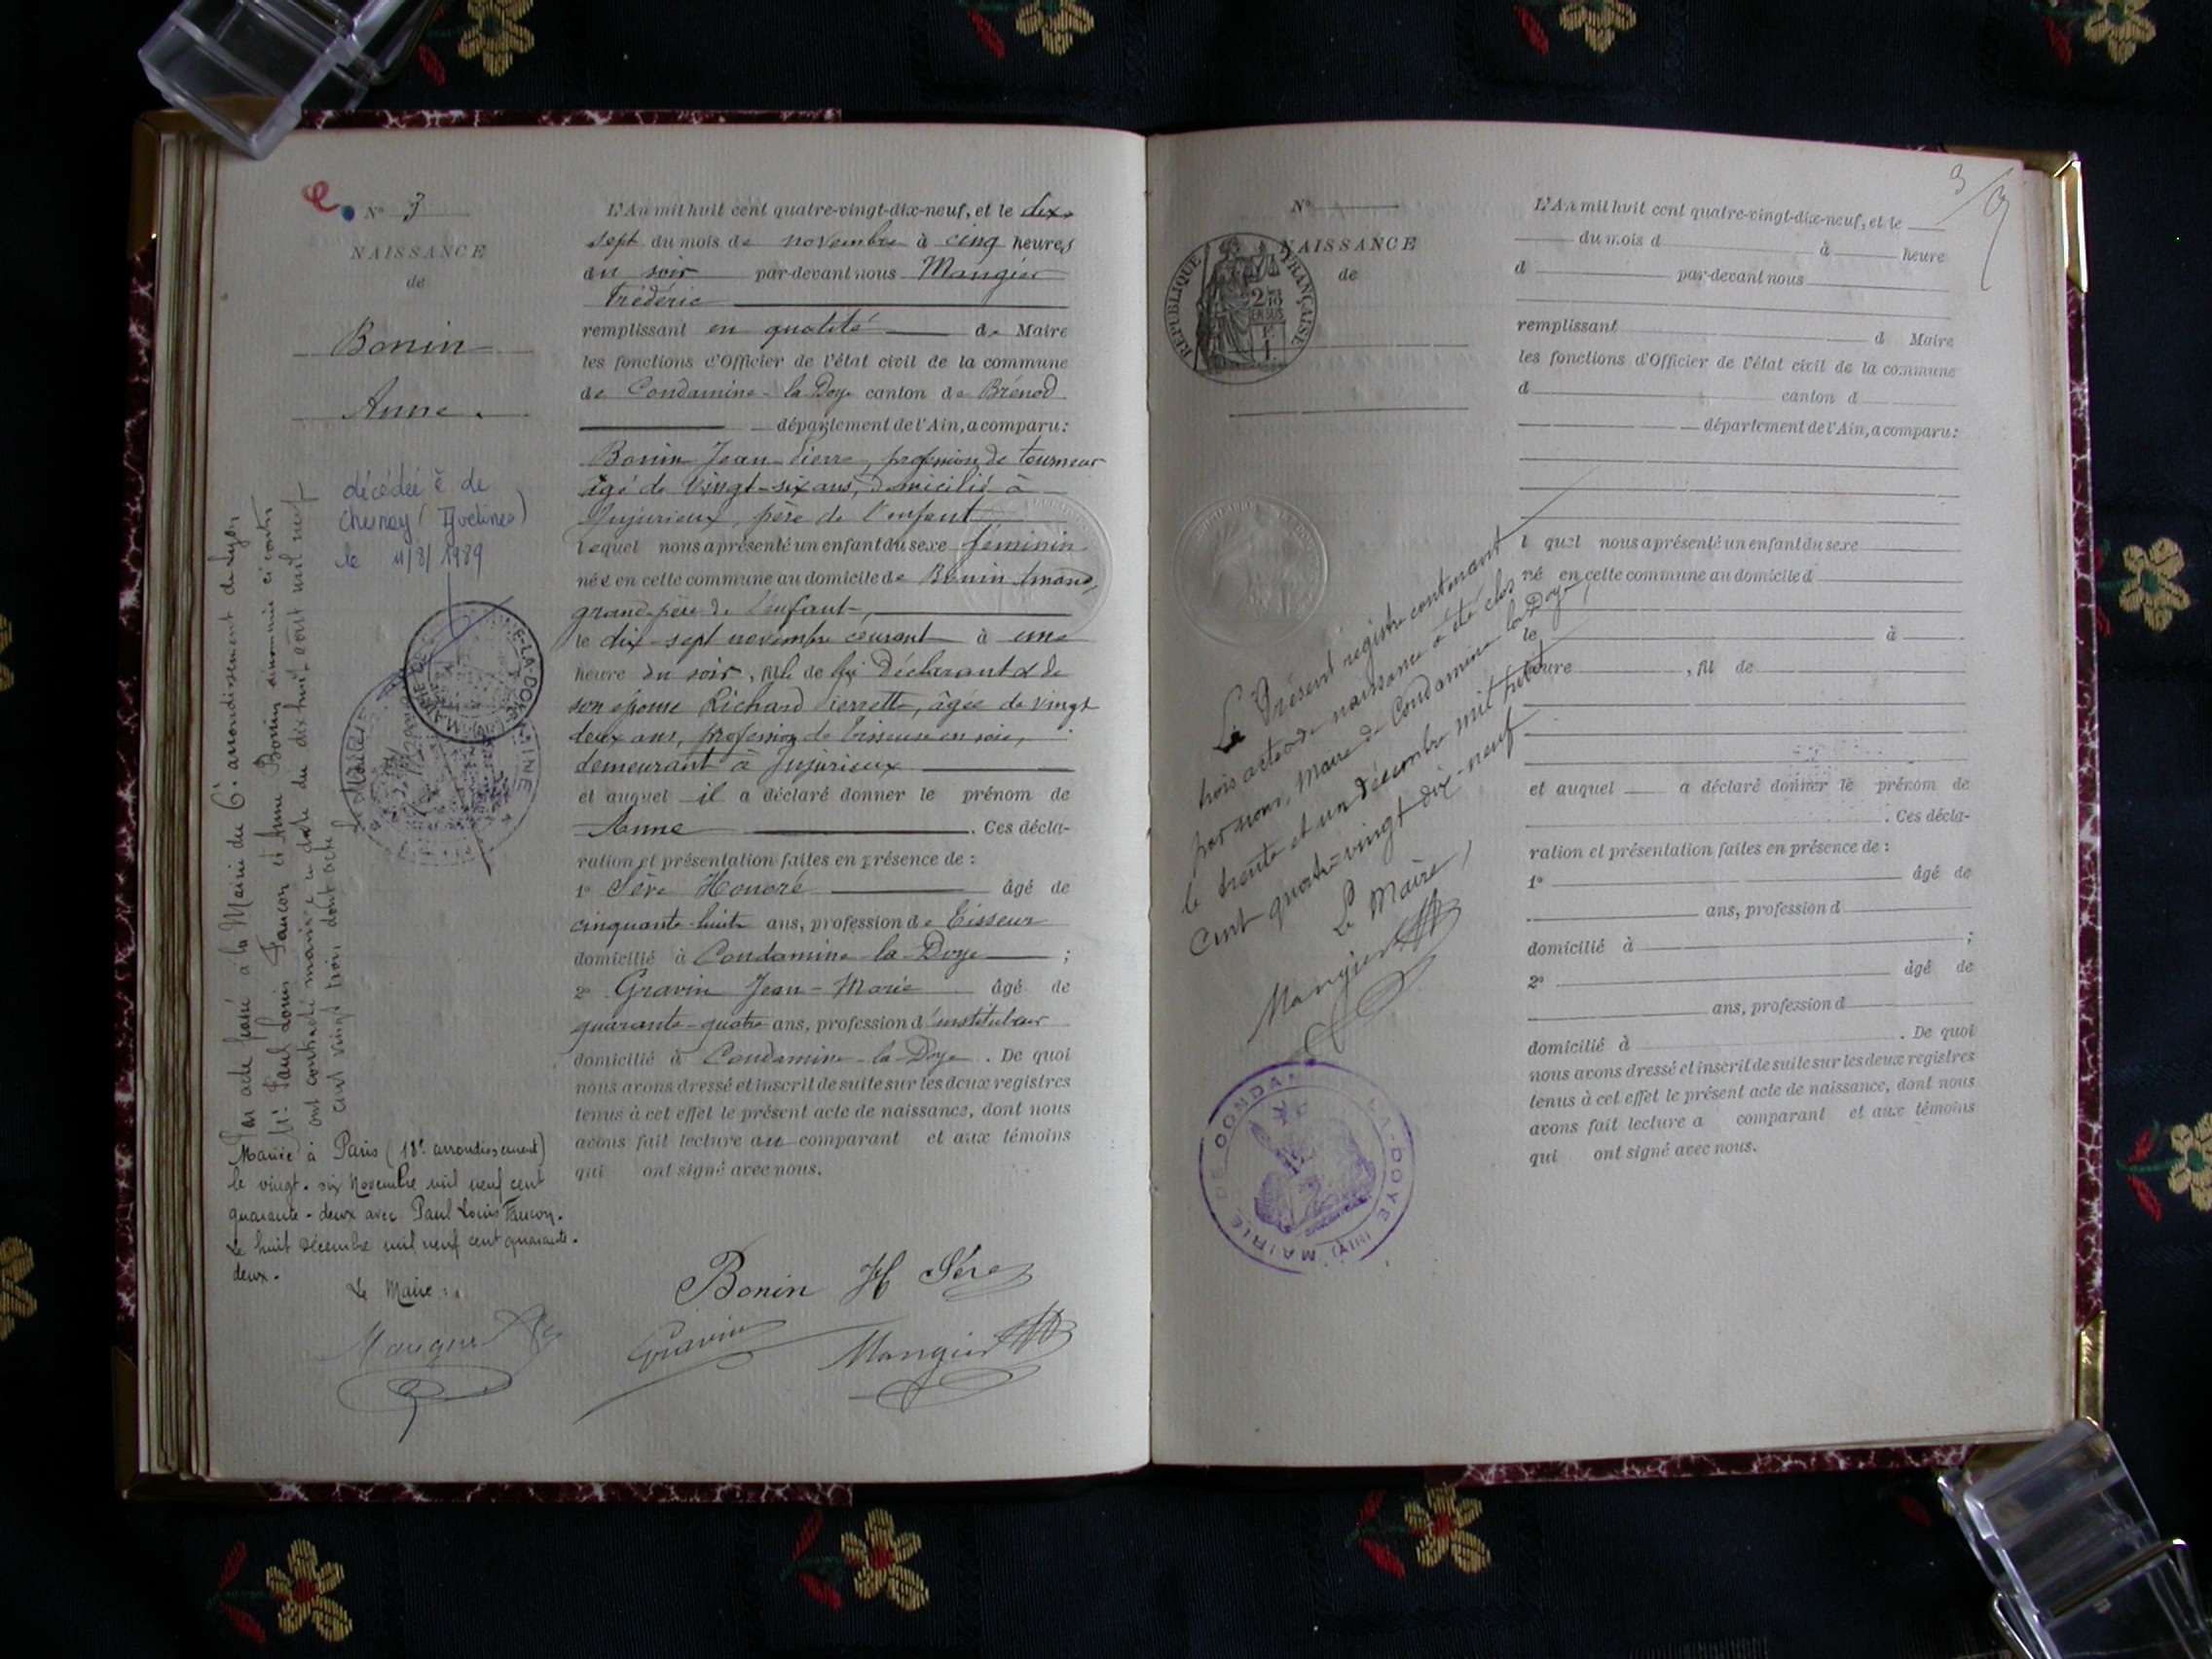 N° 3
NAISSANCE
de
Bonin
Anne.
décédée à de
Chesnay (Yvelines)
le 11/8/1989
MAIRIE DE
E-LA-DOYE
Par acte passé à la Mairie du 6e arrondissement de Lyon
Paul Louis Faucon et Anne Bonin dénommée ci contre
ont contracté mariage en date du dix huit août mil neuf
cent vingt trois dont acte
Mariée à Paris (18e arrondissement)
le vingt-six Novembre mil neuf cent
quarante-deux avec Paul Louis Faucon.
Le huit décembre mil neuf cent quarante-
deux.
Le Maire
L'An mil huit cent quatre-vingt-dix-neuf, et le dix-
sept du mois de novembre à cinq heures
du soir par-devant nous Mangier
Frédéric
remplissant en qualité de Maire
les fonctions d'Officier de l'état civil de la commune
de Condamine-la-Doye canton de Brénod
département de l'Ain, a comparu:
Bonin Jean Pierre, profession de tourneur
âgé de Vingt-six ans, domicilié à
Jujurieux, père de l'enfant
lequel nous a présenté un enfant du sexe féminin
née en cette commune au domicile de Bonin
grand-père de l'enfant,
le dix-sept novembre courant à une
heure du soir, fille de lui Déclarant & de
son épouse Richard Pierrette, âgée de vingt
deux ans, profession de tisseuse en soie,
demeurant à Jujurieux
et auquel il a déclaré donner le prénom de
Anne . Ces décla-
ration et présentation faites en présence de :
1° Sère Honoré âgé de
cinquante-huit ans, profession de Tisseur
domicilié à Condamine-la-Doye ;
2° Gravin Jean-Marie âgé de
quarante-quatre ans, profession d'instituteur
domicilié à Condamine-la-Doye . De quoi
nous avons dressé et inscrit de suite sur les deux registres
tenus à cet effet le présent acte de naissance, dont nous
avons fait lecture au comparant et aux témoins
qui ont signé avec nous.
Bonin H Sère
Gravin Mangier
N°
NAISSANCE
de
REPUBLIQUE FRANÇAISE
Le Présent registre contenant
trois actes de naissance a été clos
par nous, Maire de Condamine la Doye,
le trente et un décembre mil huit
cent quatre-vingt dix-neuf
Le Maire,
Mangier
MAIRIE DE CONDAMINE-LA-DOYE (AIN)
L'An mil huit cent quatre-vingt-dix-neuf, et le
du mois d à heure
d par-devant nous
remplissant d Maire
les fonctions d'Officier de l'état civil de la commune
d canton d
département de l'Ain, a comparu:
l quel nous a présenté un enfant du sexe
né en cette commune au domicile d
le à
heure , fil de
et auquel a déclaré donner le prénom de
. Ces décla-
ration et présentation faites en présence de :
1° âgé de
ans, profession d
domicilié à ;
2° âgé de
ans, profession d
domicilié à . De quoi
nous avons dressé et inscrit de suite sur les deux registres
tenus à cet effet le présent acte de naissance, dont nous
avons fait lecture a comparant et aux témoins
qui ont signé avec nous.